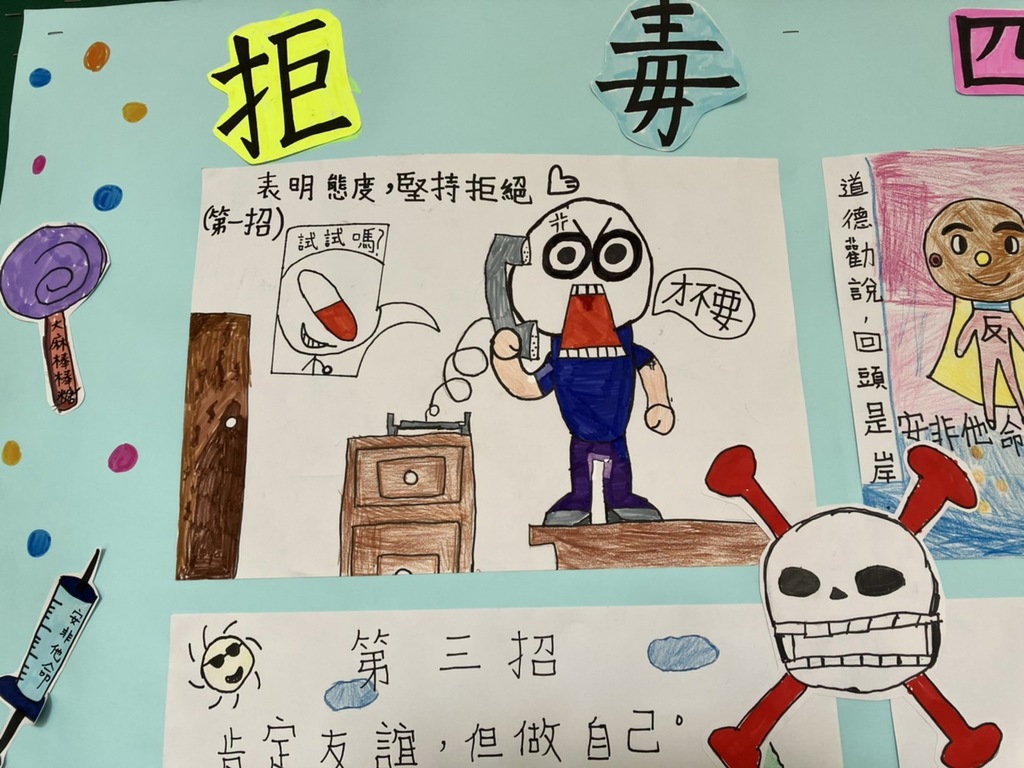 拒毒四
表明態度,堅持拒絕
(第一招)
試試嗎?
才不要
道德勸說,回頭是岸
反
安非他命
大麻棒棒糖
安非他命
第三招
肯定友誼,但做自己。